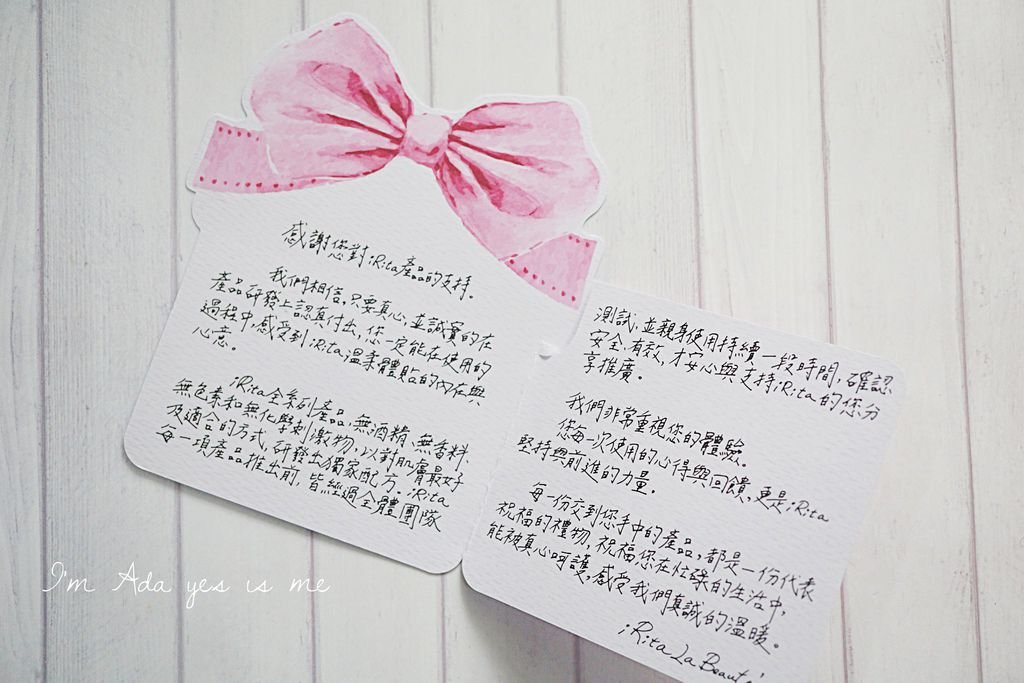 感謝您對iRita產品的支持。
我們相信,只要真心,並誠實的在
產品研發上認真付出,您一定能在使用的
過程中,感受到iRita溫柔體貼的內在與
心意。
iRita全系列產品,無酒精、無香料、
無色素和無化學刺激物,以對肌膚最好
及適合的方式,研發出獨家配方。iRita
每一項產品推出前,皆經過全體團隊
測試,並親身使用持續一段時間,確認
安全,有效,才安心與支持iRita的您分
享推廣。
我們非常重視您的體驗。
您每一次使用的心得與回饋,更是iRita
堅持與前進的力量。
每一份交到您手中的產品,都是一份代表
祝福的禮物,祝福您在忙碌的生活中,
能被真心呵護,感受我們真誠的溫暖。
iRita La Beauté
I'm Ada yes is me